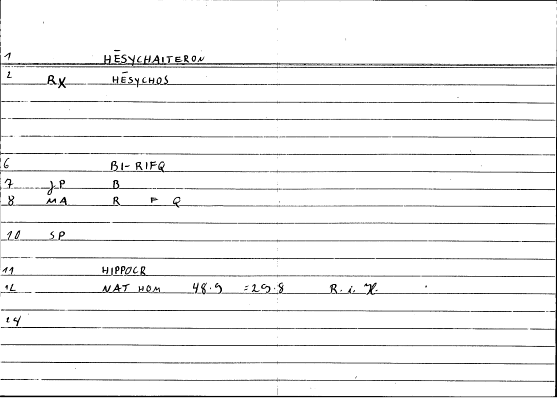 1 HĒSYCHAITERON
2 Rx HĒSYCHOS
6 BI-RIFQ
7 JP B
8 MA R F Q
10 SP
11 HIPPOCR
12 NAT HOM 48.9 =29.8 R. i. H.
14